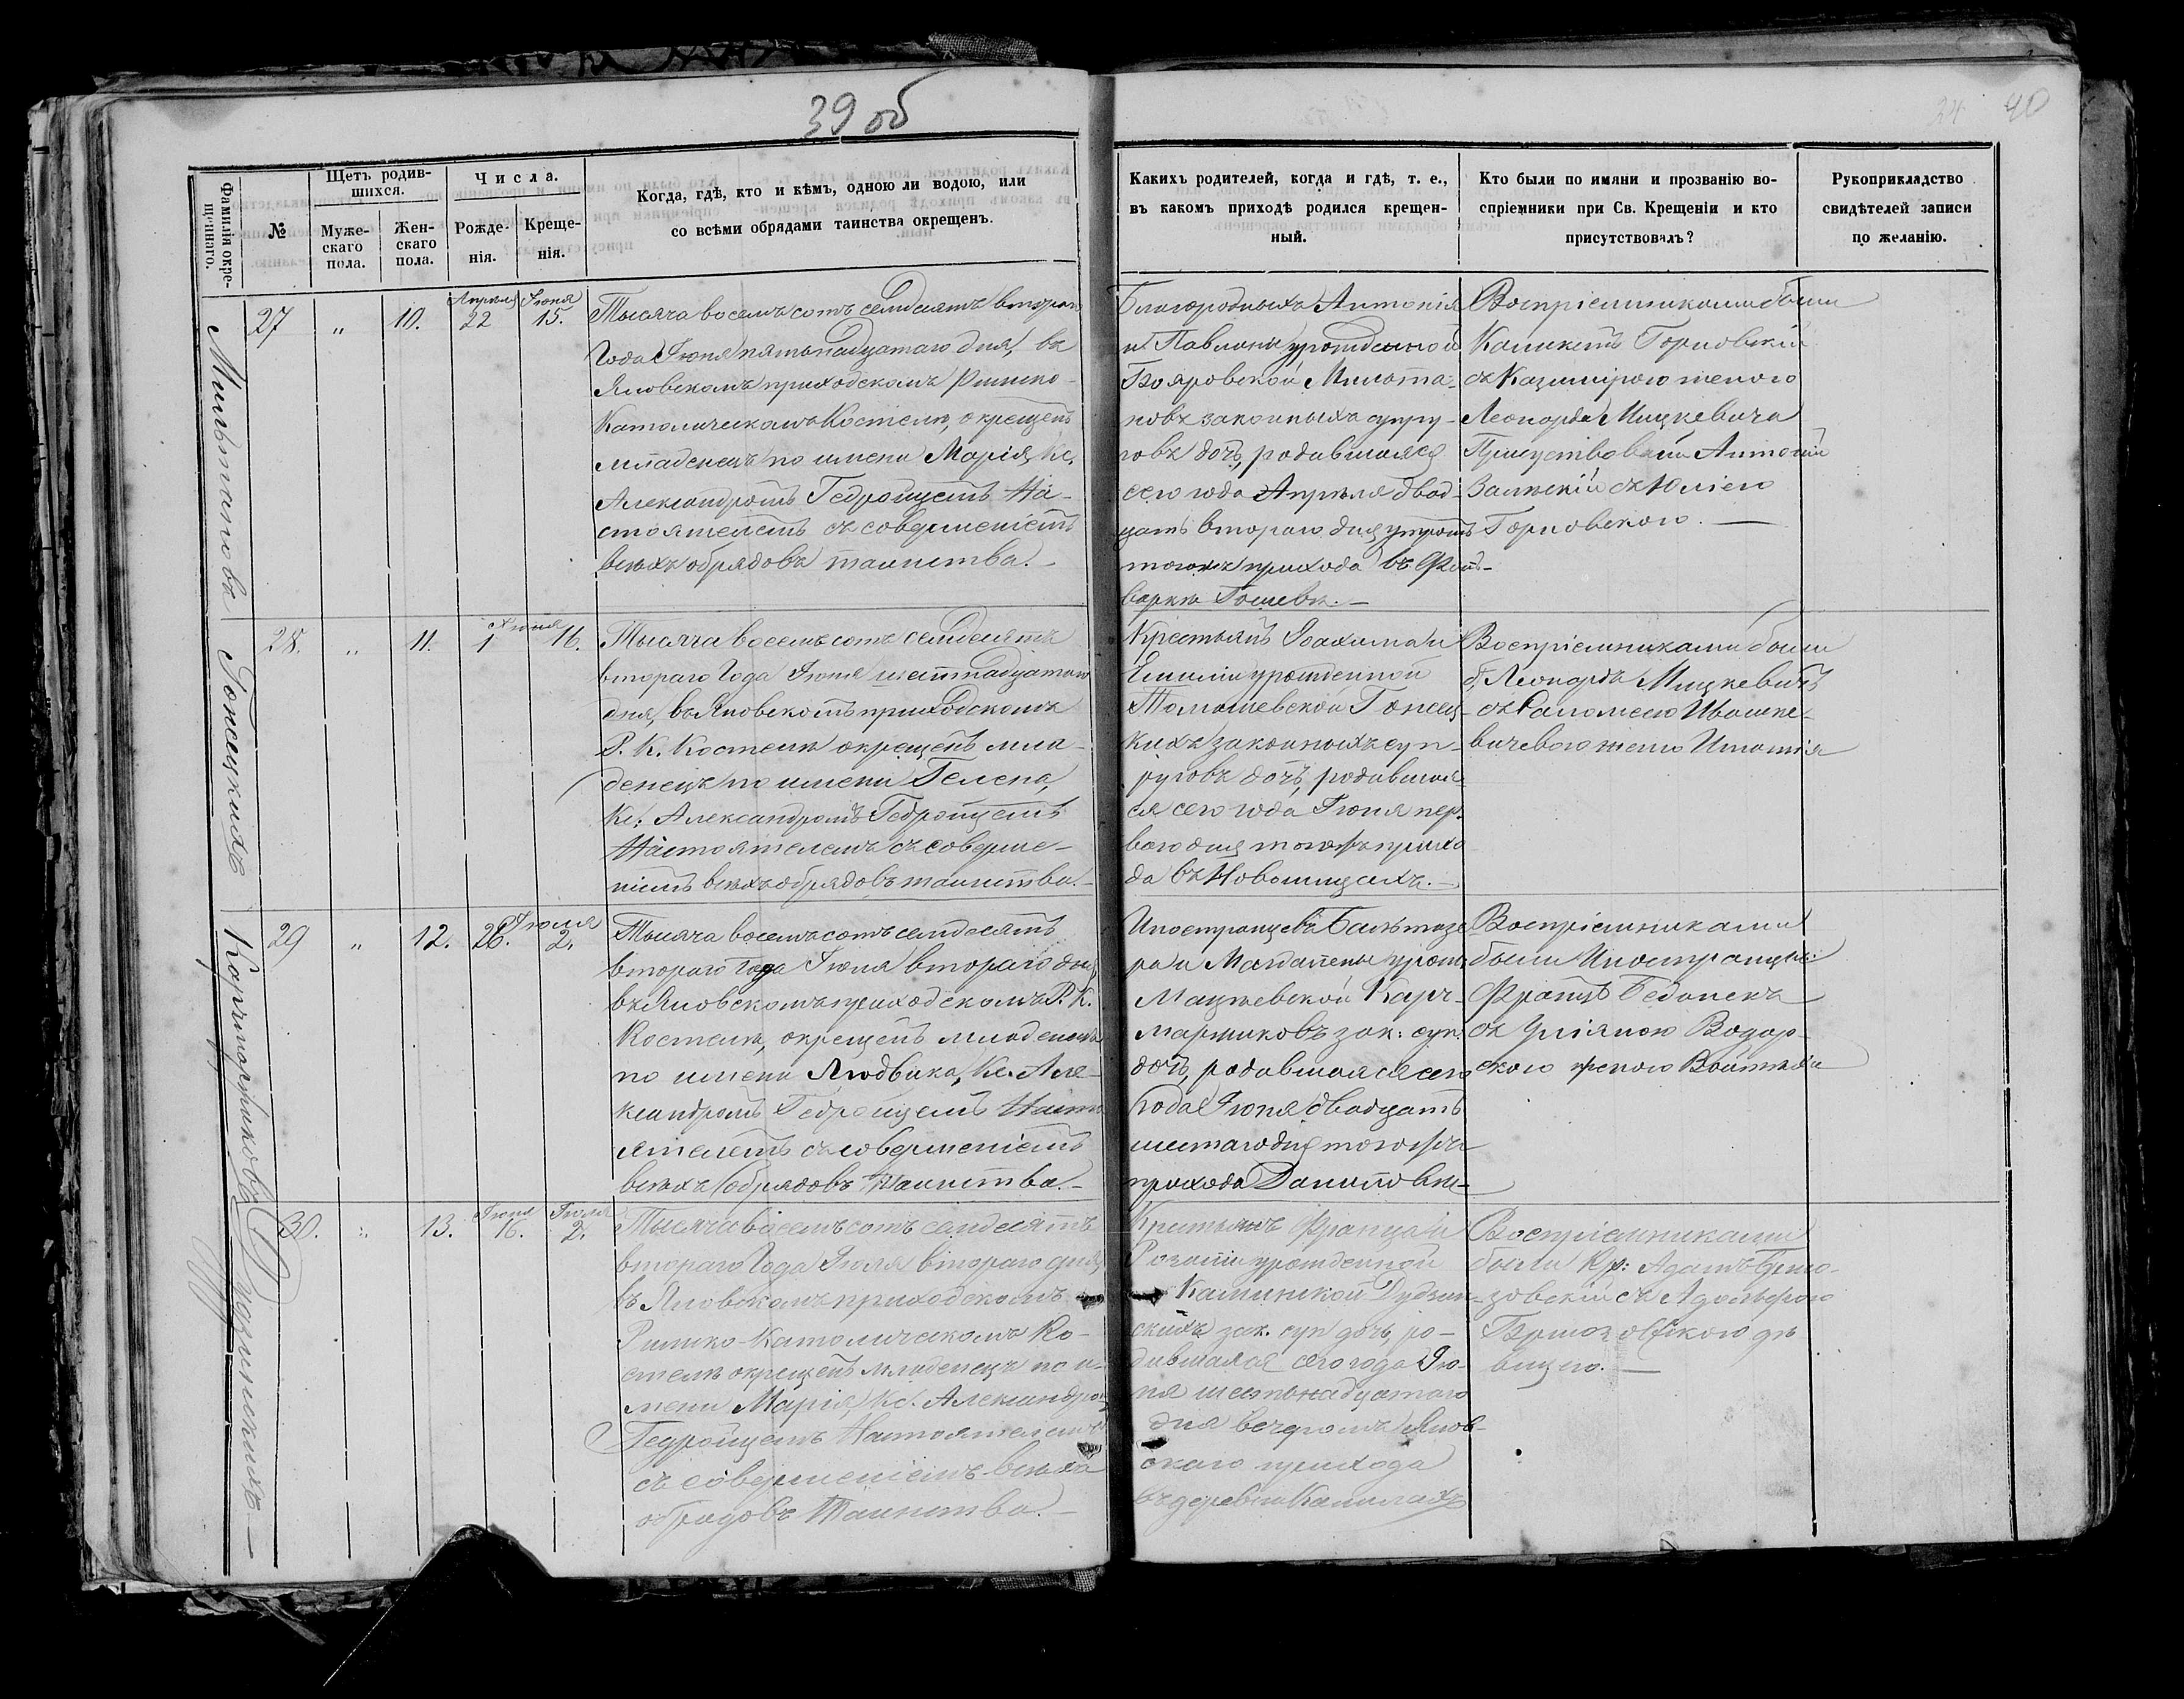 39 об
24 40
Фамилія окре-
щеннаго.
№
Щетъ родив-
шихся.
Муже-
скаго
пола.
Жен-
скаго
пола.
Числа.
Рожде-
нія.
Креще-
нія.
Когда, гдѣ, кто и кѣмъ, одною ли водою, или
со всѣми обрядами таинства окрещенъ.
Какихъ родителей, когда и гдѣ, т. е.,
въ какомъ приходѣ родился крещен-
ный.
Кто были по имяни и прозванію во-
спріемники при Св. Крещеніи и кто
присутствовалъ?
Рукоприкладство
свидѣтелей записи
по желанію.
27 " 10. Апрѣля 22 Іюня 15.
Тысяча восемьсотъ семдесятъ второго
Года Іюня пятьнадцатаго дня, въ
Яновскомъ приходскомъ Римско-
Католическомъ Костелѣ, окрещенъ
младенецъ по имени Марія, Кс.
Александромъ Гедройцемъ На-
стоятелемъ съ совершеніемъ
всѣхъ обрядовъ таинства.-
Благородныхъ Антонія
и Павлины урожденной
Бояровской
законныхъ супру-
говъ дочь, родившаяся
сего года Апрѣля двад-
цать второго дня утромъ
тогожъ прихода въ Фоль-
варкѣ
Воспріемниками были
Горновскій
съ Казимірою женою
Леонарда Мицкевича
Присутствовали Антоній
Залѣскій съ Юліею
Горновскою. —
28. " 11. 1 Іюня 16.
Тысяча восемьсотъ семдесятъ
второго Года Іюня шестнадцатого
дня, въ Яновскомъ приходскомъ
Р. К. Костелѣ окрещенъ мла-
денецъ по имени Гелена,
Кс: Александромъ Гедройцемъ
Настоятелемъ съ соверше-
ніемъ всѣхъ обрядовъ таинства.-
Крестьянъ Іоахима и
Емиліи урожденной
Томашевской Гонсец-
кихъ законныхъ суп-
руговъ дочь, родившая-
ся сего года Іюня пер-
ваго дня тогожъ прихо
да въ
Воспріемниками были
б. Леонардъ Мицкевичъ
съ Саломеею Ивашке-
вичевою женою Игнатія
29 " 12. 26. Іюля 2.
Тысяча восемьсотъ семдесятъ
второго Года Іюля второго дня,
въ Яновскомъ приходскомъ Р. К.
Костелѣ, окрещенъ младенецъ
по имени Людвика, Кс. Але-
ксандромъ Гедройцемъ Насто
ятелемъ съ совершеніемъ
всѣхъ обрядовъ Таинства.-
Иностранцевъ Бальтаза
ра и Магдалены урожд.
Карч-
марчиковъ зак: суп.
дочь, родившаяся сего
года Іюня двадцать
шестаго дня тогожъ
прихода
Воспріемниками
были Иностранцы:
Францъ
съ Уліяною
женою
30. " 13. Іюня 16. Іюля 2.
Тысяча восемьсотъ семдесятъ
второго Года Іюля второго дня,
въ Яновскомъ приходскомъ
Римско-Католическомъ Ко-
стелѣ окрещенъ младенецъ по и-
мени Марія, Кс. Александромъ
Гедройцемъ Настоятелемъ
съ совершеніемъ всѣхъ
обрядовъ Таинства.-
Крестьянъ Франца и
Розаліи урожденной
Каминской Дудзин-
скихъ зак. суп дочь, ро-
дившаяся сего года Ію-
ня шестьнадцатаго
дня вечеромъ Янов-
скаго прихода
въ деревнѣ
Воспріемниками
были Кр: Адамъ
съ
дѣ
вицею. —
Гонсецкихъ
Карчмарчиковъ